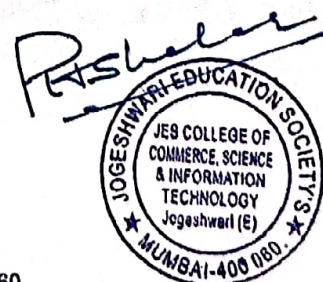 JOGESHWARI EDUCATION SOCIETY'S
JES COLLEGE OF
COMMERCE, SCIENCE
& INFORMATION
TECHNOLOGY
Jogeshwari (E)
★ MUMBAI-400 060. ★
60